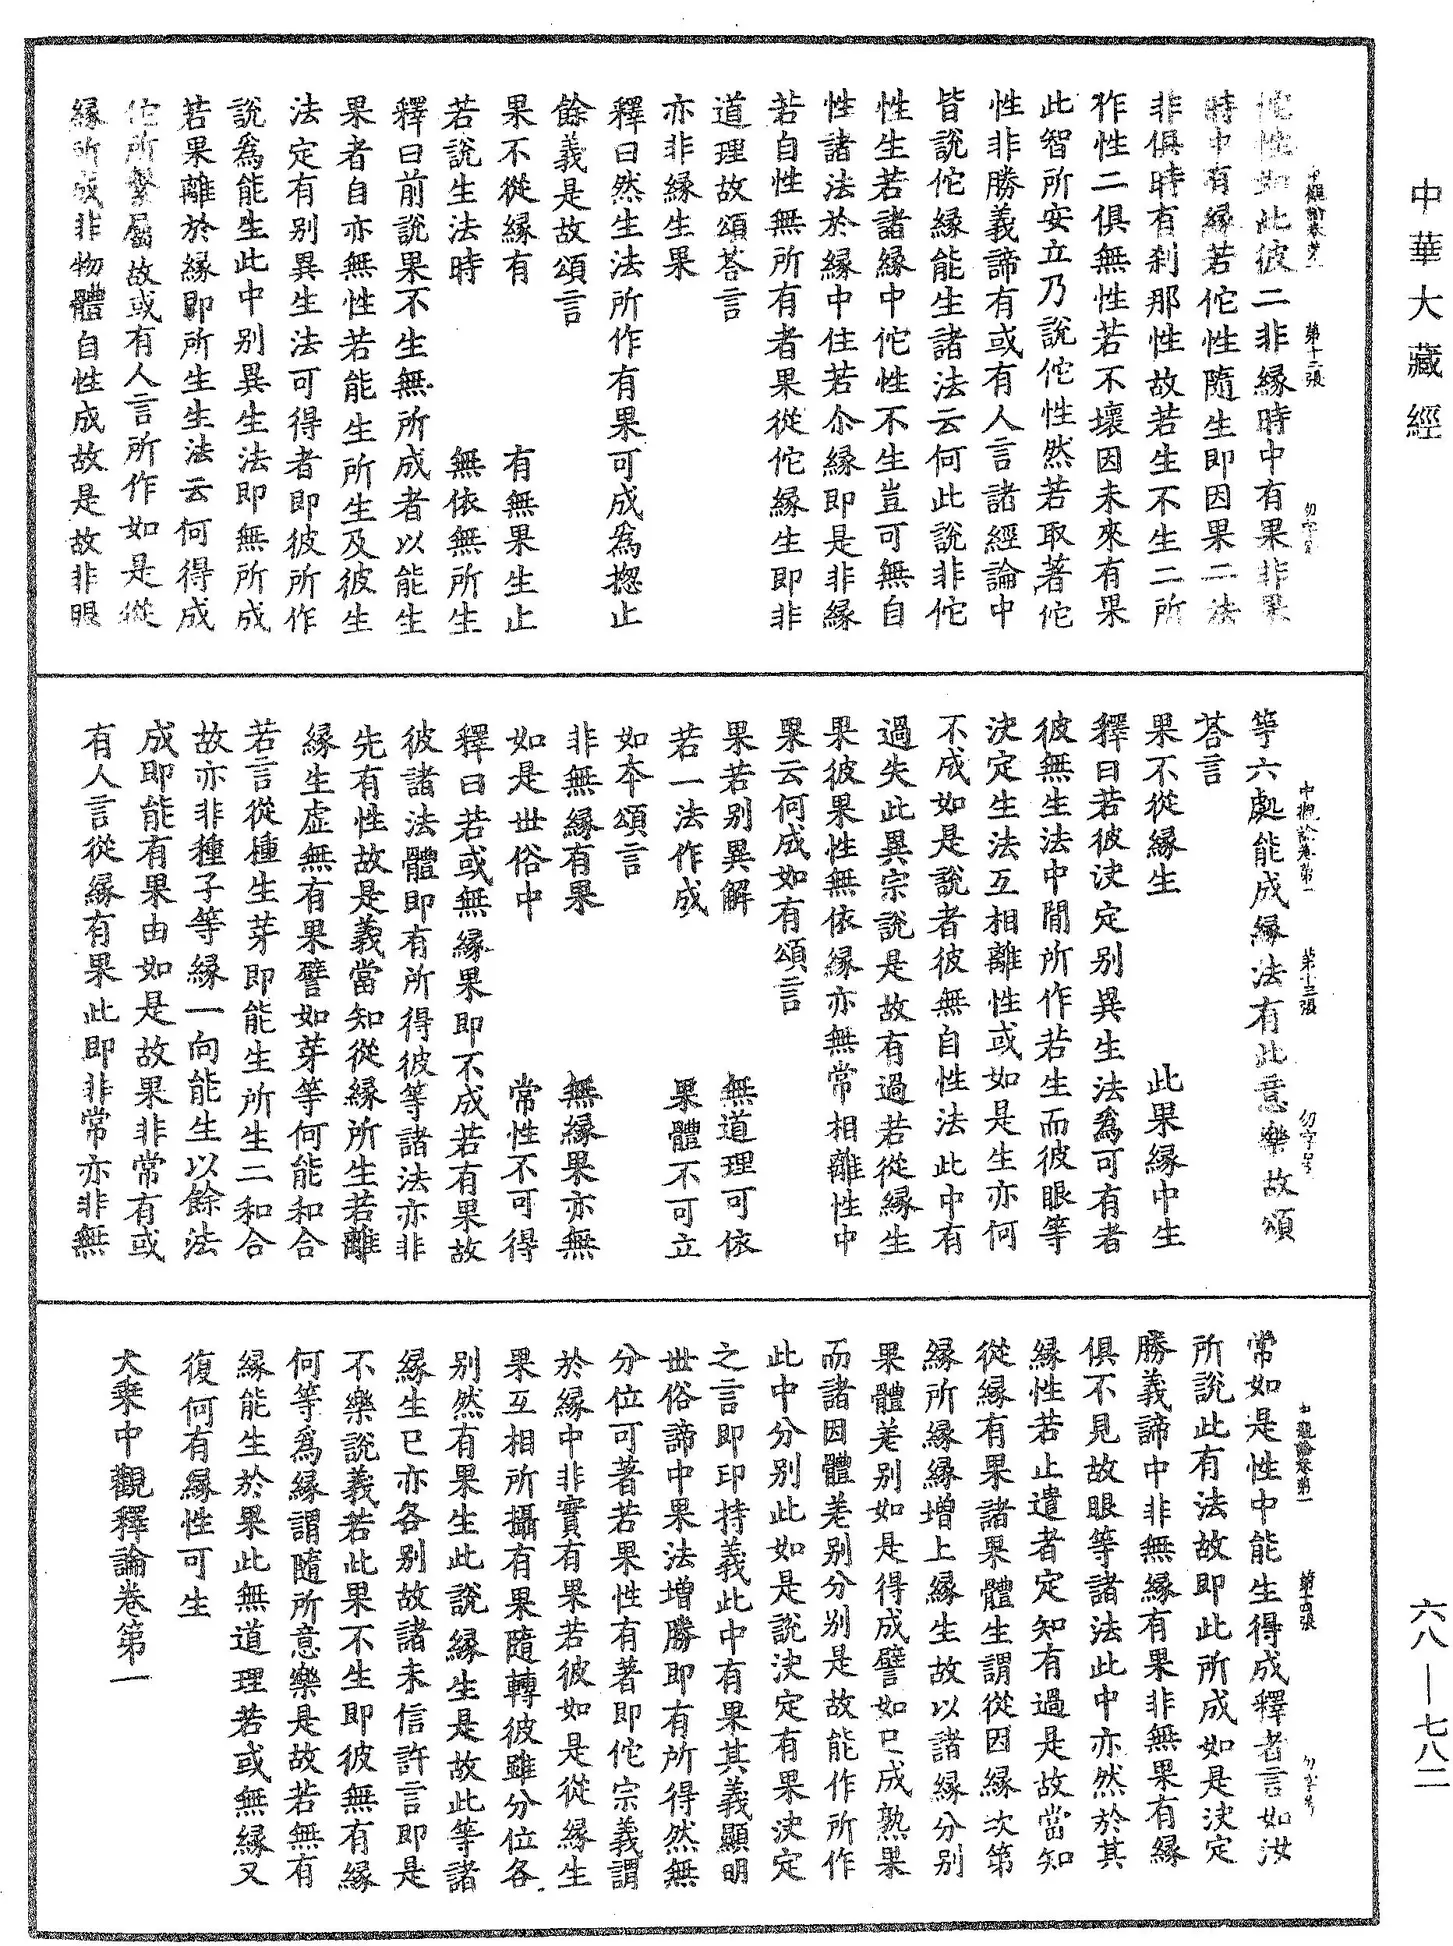 中華大藏經
中觀論卷第一 第十二張 勿字号
佗性如此彼二非緣時中有果非果
時中有緣若佗性隨生即因果二法
非俱時有刹那性故若生不生二所
作性二俱無性若不壞因未來有果
此智所安立乃說佗性然若取著佗
性非勝義諦有或有人言諸經論中
皆說佗緣能生諸法云何此說非佗
性生若諸緣中佗性不生豈可無自
性諸法於緣中住若尒緣即是非緣
若自性無所有者果從佗緣生即非
道理故頌荅言
亦非緣生果
釋曰然生法所作有果可成爲揔止
餘義是故頌言
果不從緣有 有無果生止
若說生法時 無依無所生
釋曰前說果不生無所成者以能生
果者自亦無性若能生所生及彼生
法定有別異生法可得者即彼所作
說爲能生此中別異生法即無所成
若果離於緣即所生生法云何得成
佗所繫屬故或有人言所作如是從
緣所成非物體自性成故是故非眼
中觀論卷第一 第十三張 勿字号
等六處能成緣法有此意樂故頌
荅言
果不從緣生 此果緣中生
釋曰若彼決定別異生法爲可有者
彼無生法中間所作若生而彼眼等
決定生法互相離性或如是生亦何
不成如是說者彼無自性法此中有
過失此異宗說是故有過若從緣生
果彼果性無依緣亦無常相離性中
果云何成如有頌言
果若別異解 無道理可依
若一法作成 果體不可立
如本頌言
非無緣有果 無緣果亦無
如是世俗中 常性不可得
釋曰若或無緣果即不成若有果故
彼諸法體即有所得彼等諸法亦非
先有性故是義當知從緣所生若離
緣生虛無有果譬如芽等何能和合
若言從種生芽即能生所生二和合
故亦非種子等緣一向能生以餘法
成即能有果由如是故果非常有或
有人言從緣有果此即非常亦非無
中觀論卷第一 第十四張 勿字号
常如是性中能生得成釋者言如汝
所說此有法故即此所成如是決定
勝義諦中非無緣有果非無果有緣
俱不見故眼等諸法此中亦然於其
緣性若止遣者定知有過是故當知
從緣有果諸果體生謂從因緣次第
緣所緣緣增上緣生故以諸緣分別
果體差別如是得成譬如已成熟果
而諸因體差別分別是故能作所作
此中分別此如是說決定有果決定
之言即印持義此中有果其義顯明
世俗諦中果法增勝即有所得然無
分位可著若果性有著即佗宗義謂
於緣中非實有果若彼如是從緣生
果互相所攝有果隨轉彼雖分位各
別然有果生此說緣生是故此等諸
緣生已亦各別故諸未信許言即是
不樂說義若此果不生即彼無有緣
何等爲緣謂隨所意樂是故若無有
緣能生於果此無道理若或無緣又
復何有緣性可生
大乘中觀釋論卷第一
六八—七八二